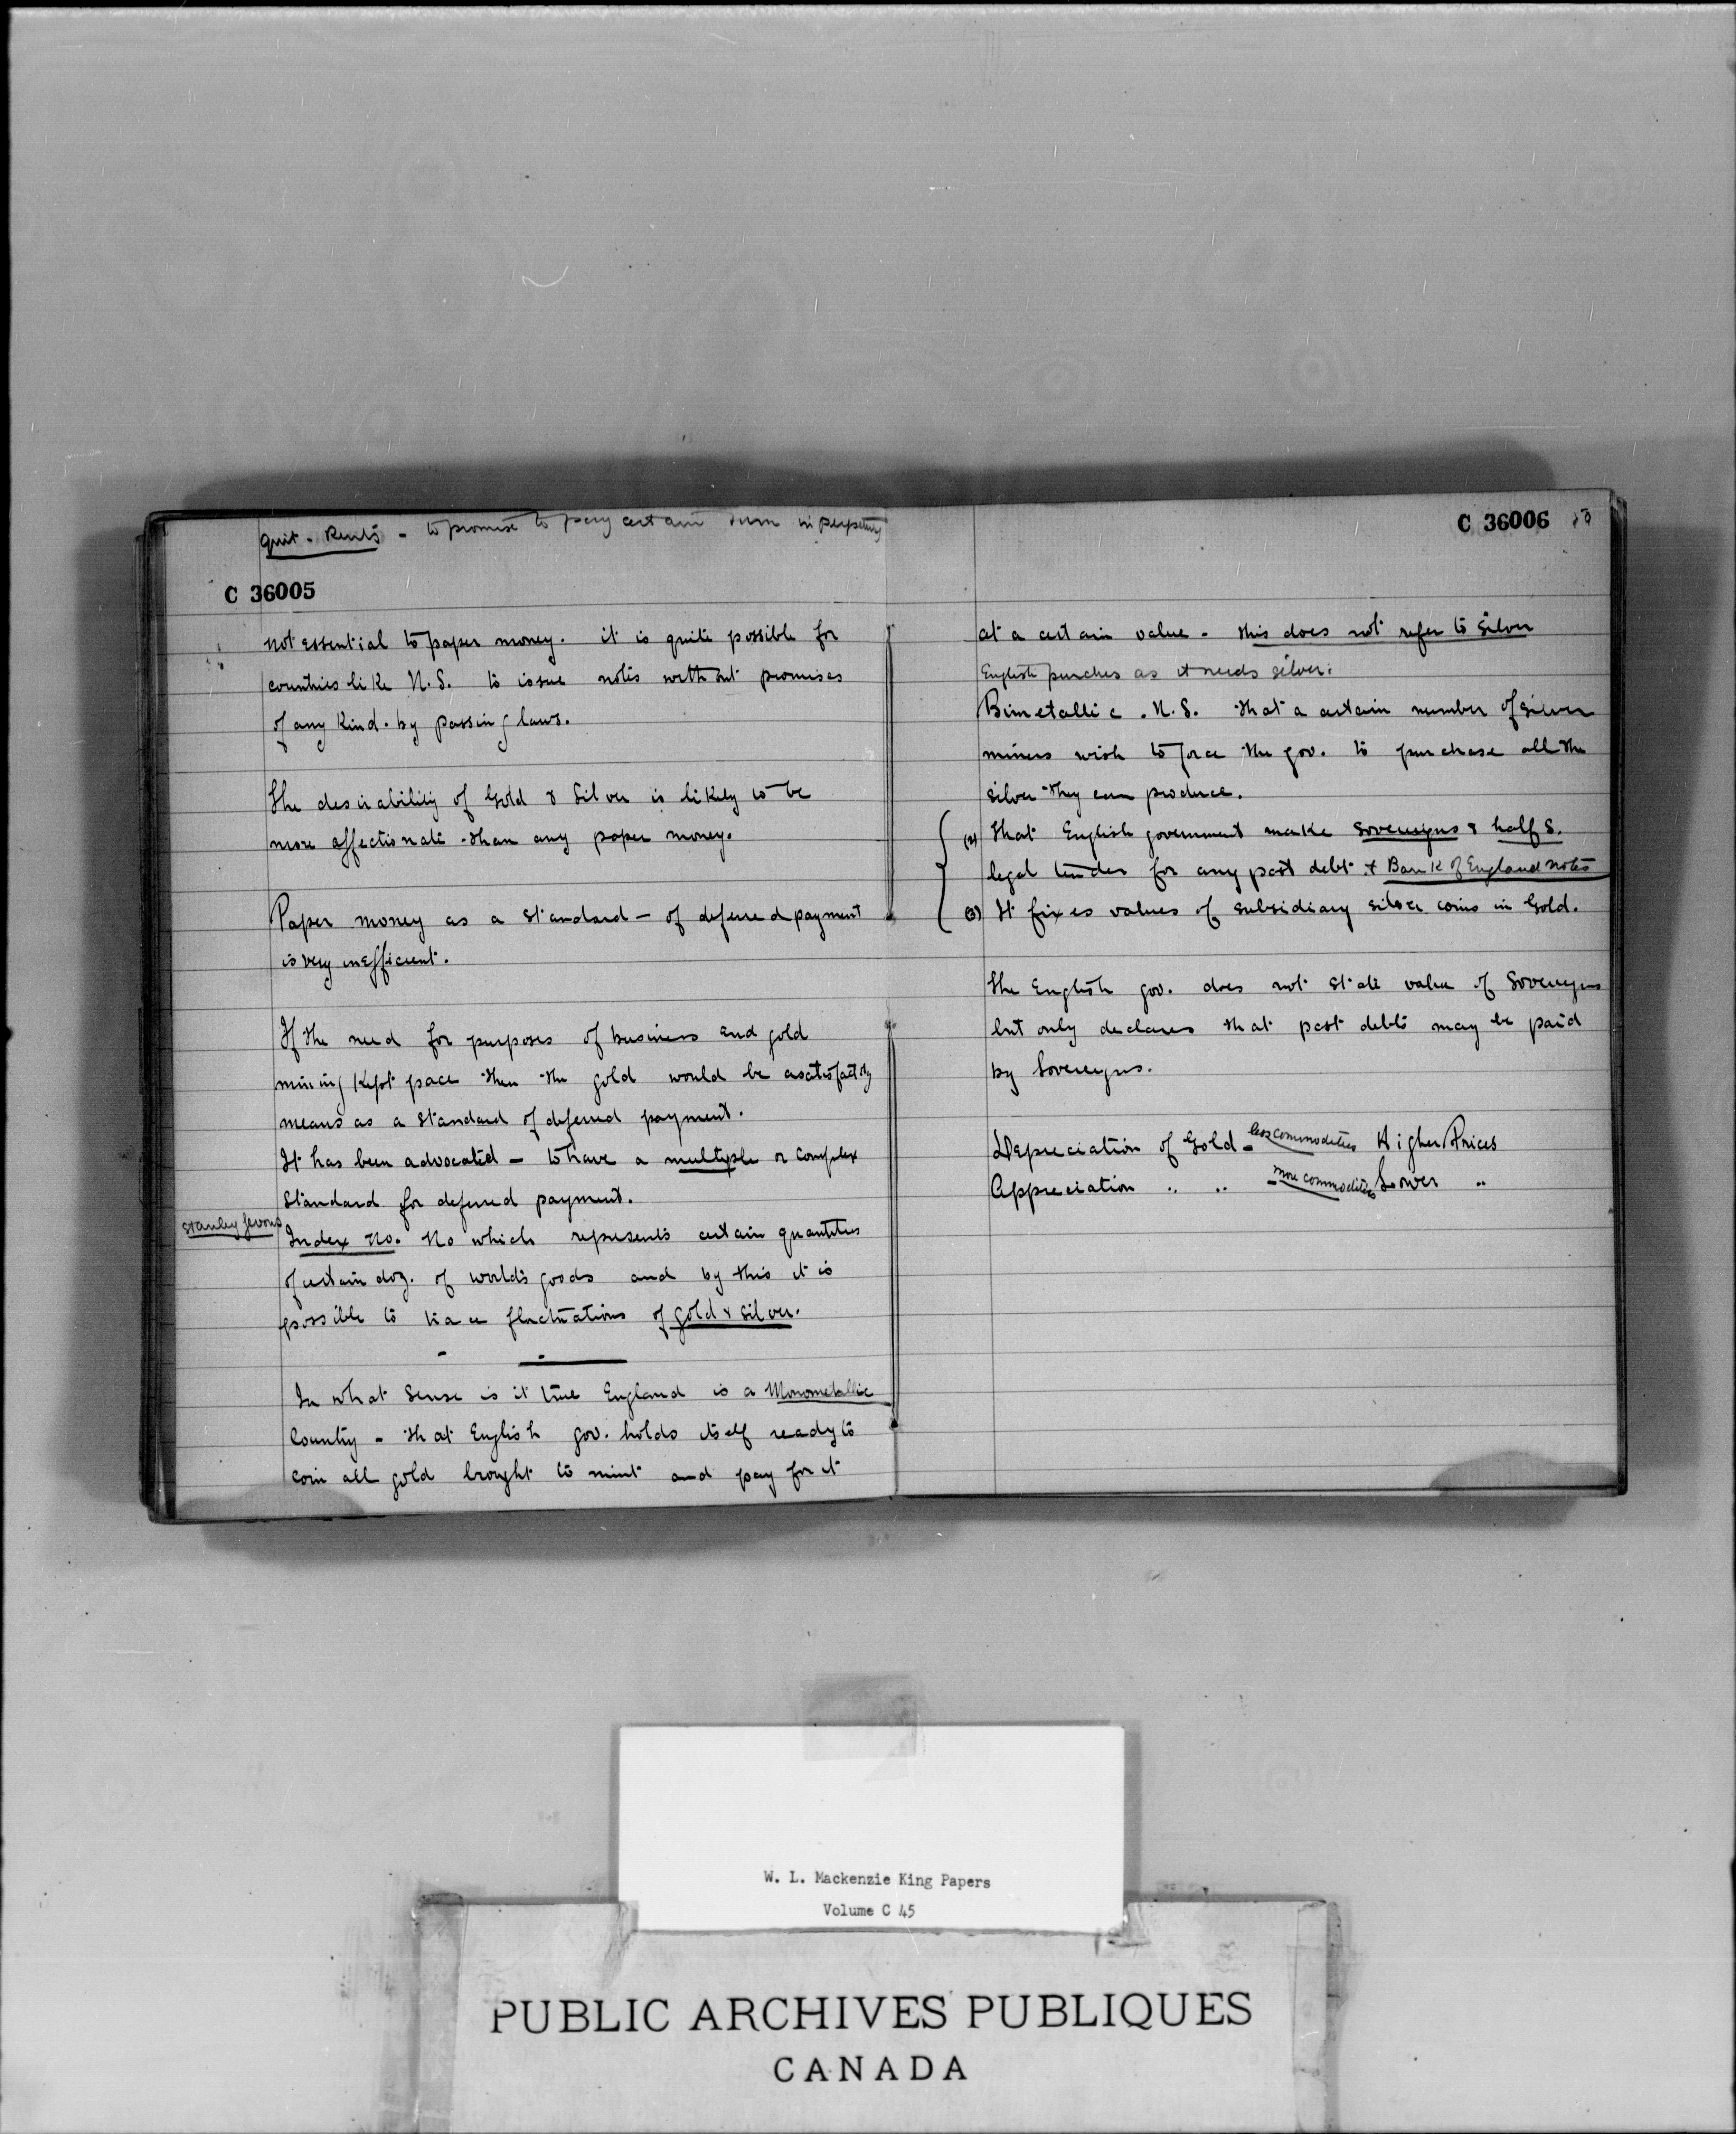 quit. Rents - to promise to pay certain sum in perpetuity
C 36005
not essential to paper money. it is quite possible for
countries like U.S. to issue notes without promises
of any kind. by passing laws.
The desirability of Gold & Silver is likely to be
more affectionate than any paper money.
Paper money as a standard - of deferred payment
is very inefficient.
If the need for purposes of business and gold
mining kept pace then the gold would be a satisfactory
means as a standard of deferred payment.
It has been advocated - to have a multiple or complex
standard for deferred payment.
Stanley Jevons
Index no. No which represents certain quantities
of certain doz. of world's goods and by this it is
possible to trace fluctuations of gold & silver.
In what sense is it true England is a Monometallic
Country - that English gov. holds itself ready to
coin all gold brought to mint and pay for it
C 36006
at a certain value - this does not refer to silver
English purches as it needs silver.
Bimetallic . U.S. that a certain number of silver
miners wish to force the gov. to purchase all the
silver they can produce.
(2) that English government make sovereigns & half S.
legal tender for any past debt. & Bank of England notes
(3) It fixes values of subsidiary silver coins in Gold.
The English gov. does not state value of Sovereigns
but only declares that past debts may be paid
by Sovereigns.
Depreciation of Gold - less commodities Higher Prices
Appreciation " " - more commodities Lower "
W. L. Mackenzie King Papers
Volume C 45
PUBLIC ARCHIVES PUBLIQUES
CANADA